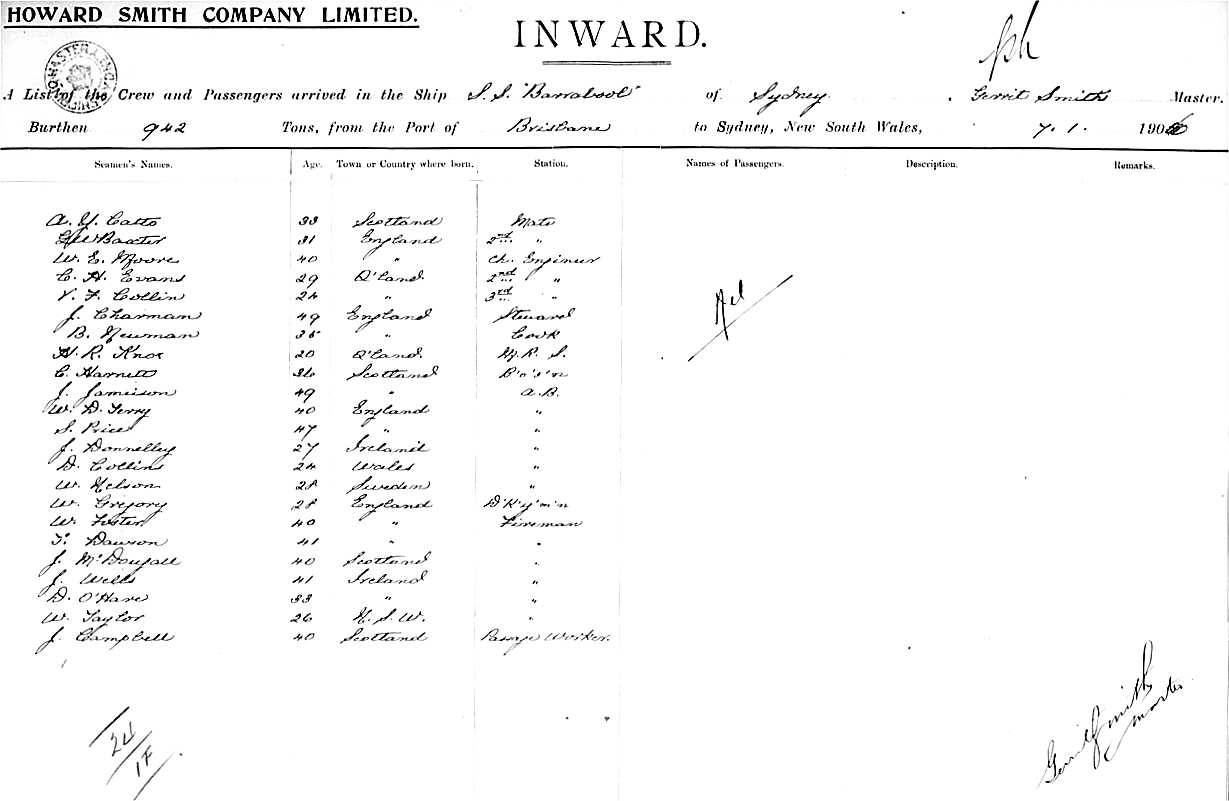 HOWARD SMITH COMPANY LIMITED.
INWARD.
A List of the Crew and Passengers arrived in the Ship S.S. "Barrabool" of Sydney, Gerrit Smith Master.
Burthen 942 Tons, from the Port of Brisbane to Sydney, New South Wales, 7. 1. 1906
Seamen's Names. Age. Town or Country where born. Station. Names of Passengers. Description. Remarks.
A. Y. Catto 33 Scotland Mate
Baxter 31 England 2nd "
W. E. Moore 40 " Ch. Engineer
C. H. Evans 29 Q'land 2nd "
V. F. Collin 24 " 3rd "
J. Charman 49 England Steward
B. Newman 35 " Cook
H. R. Knox 20 Q'land. M. R. S.
C. Harnett 36 Scotland B'o's'n
J. Jameison 49 " A.B.
W. D. Terry 40 England "
S. Price 47 " "
J. Donnelley 27 Ireland "
D. Collins 24 Wales "
W. Nelson 28 Sweden "
W. Gregory 28 England D'k'y'm'n
W. Foster 40 " Fireman
T. Dawson 41 " "
J. McDougall 40 Scotland "
J. Wells 41 Ireland "
D. O'Hare 33 " "
W. Taylor 26 N. S. W. "
J. Campbell 40 Scotland Passage Worker.
Nil
24
Gerrit Smith
Master